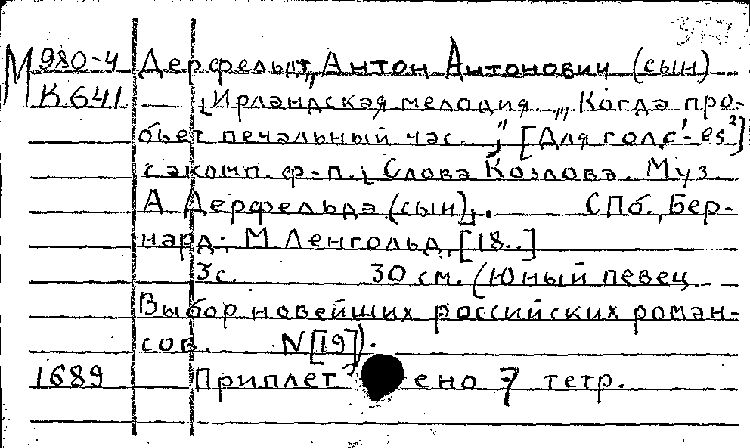 М 980-4 Дерфельдт, Антон Антонович (сын)
К 641 — „Ирландская мелодия „Когда про-
бьет печальный час..." [Для голс'-es²]
с экомп. ф-п.; Слова Козлова. Муз
А Дерфельда (сын);. СПб., Бер-
нард; М Ленгольд, [18..]
3с. 30 см. (Юный певец
Выбор новейших российских роман-
сов. N [19]).
1689 Приплет ено 7 тетр.